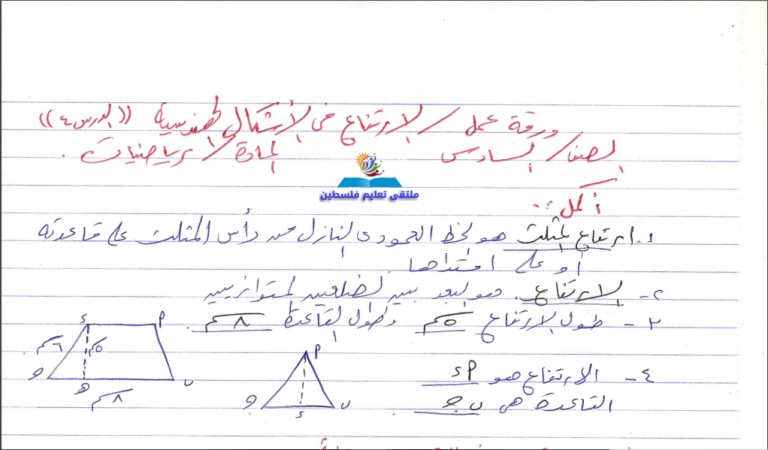 ورقة عمل / الارتفاع في الأشكال الهندسية ((الدرس ٤))
الصف / السادس المادة / رياضيات .
ملتقى تعليم فلسطين
أكمل :-
١. ارتفاع المثلث هو الخط العمودي النازل من رأس المثلث على قاعدته
أو على امتدادها .
٢- الارتفاع . هو البعد بين الضلعين المتوازيين
٣- طول الارتفاع ٥سم وطول القاعدة ٨سم
د أ
٦سم ٥سم
جـ هـ ب
٨سم
٤- الارتفاع هو أد
القاعدة هي ب جـ
أ
جـ د ب